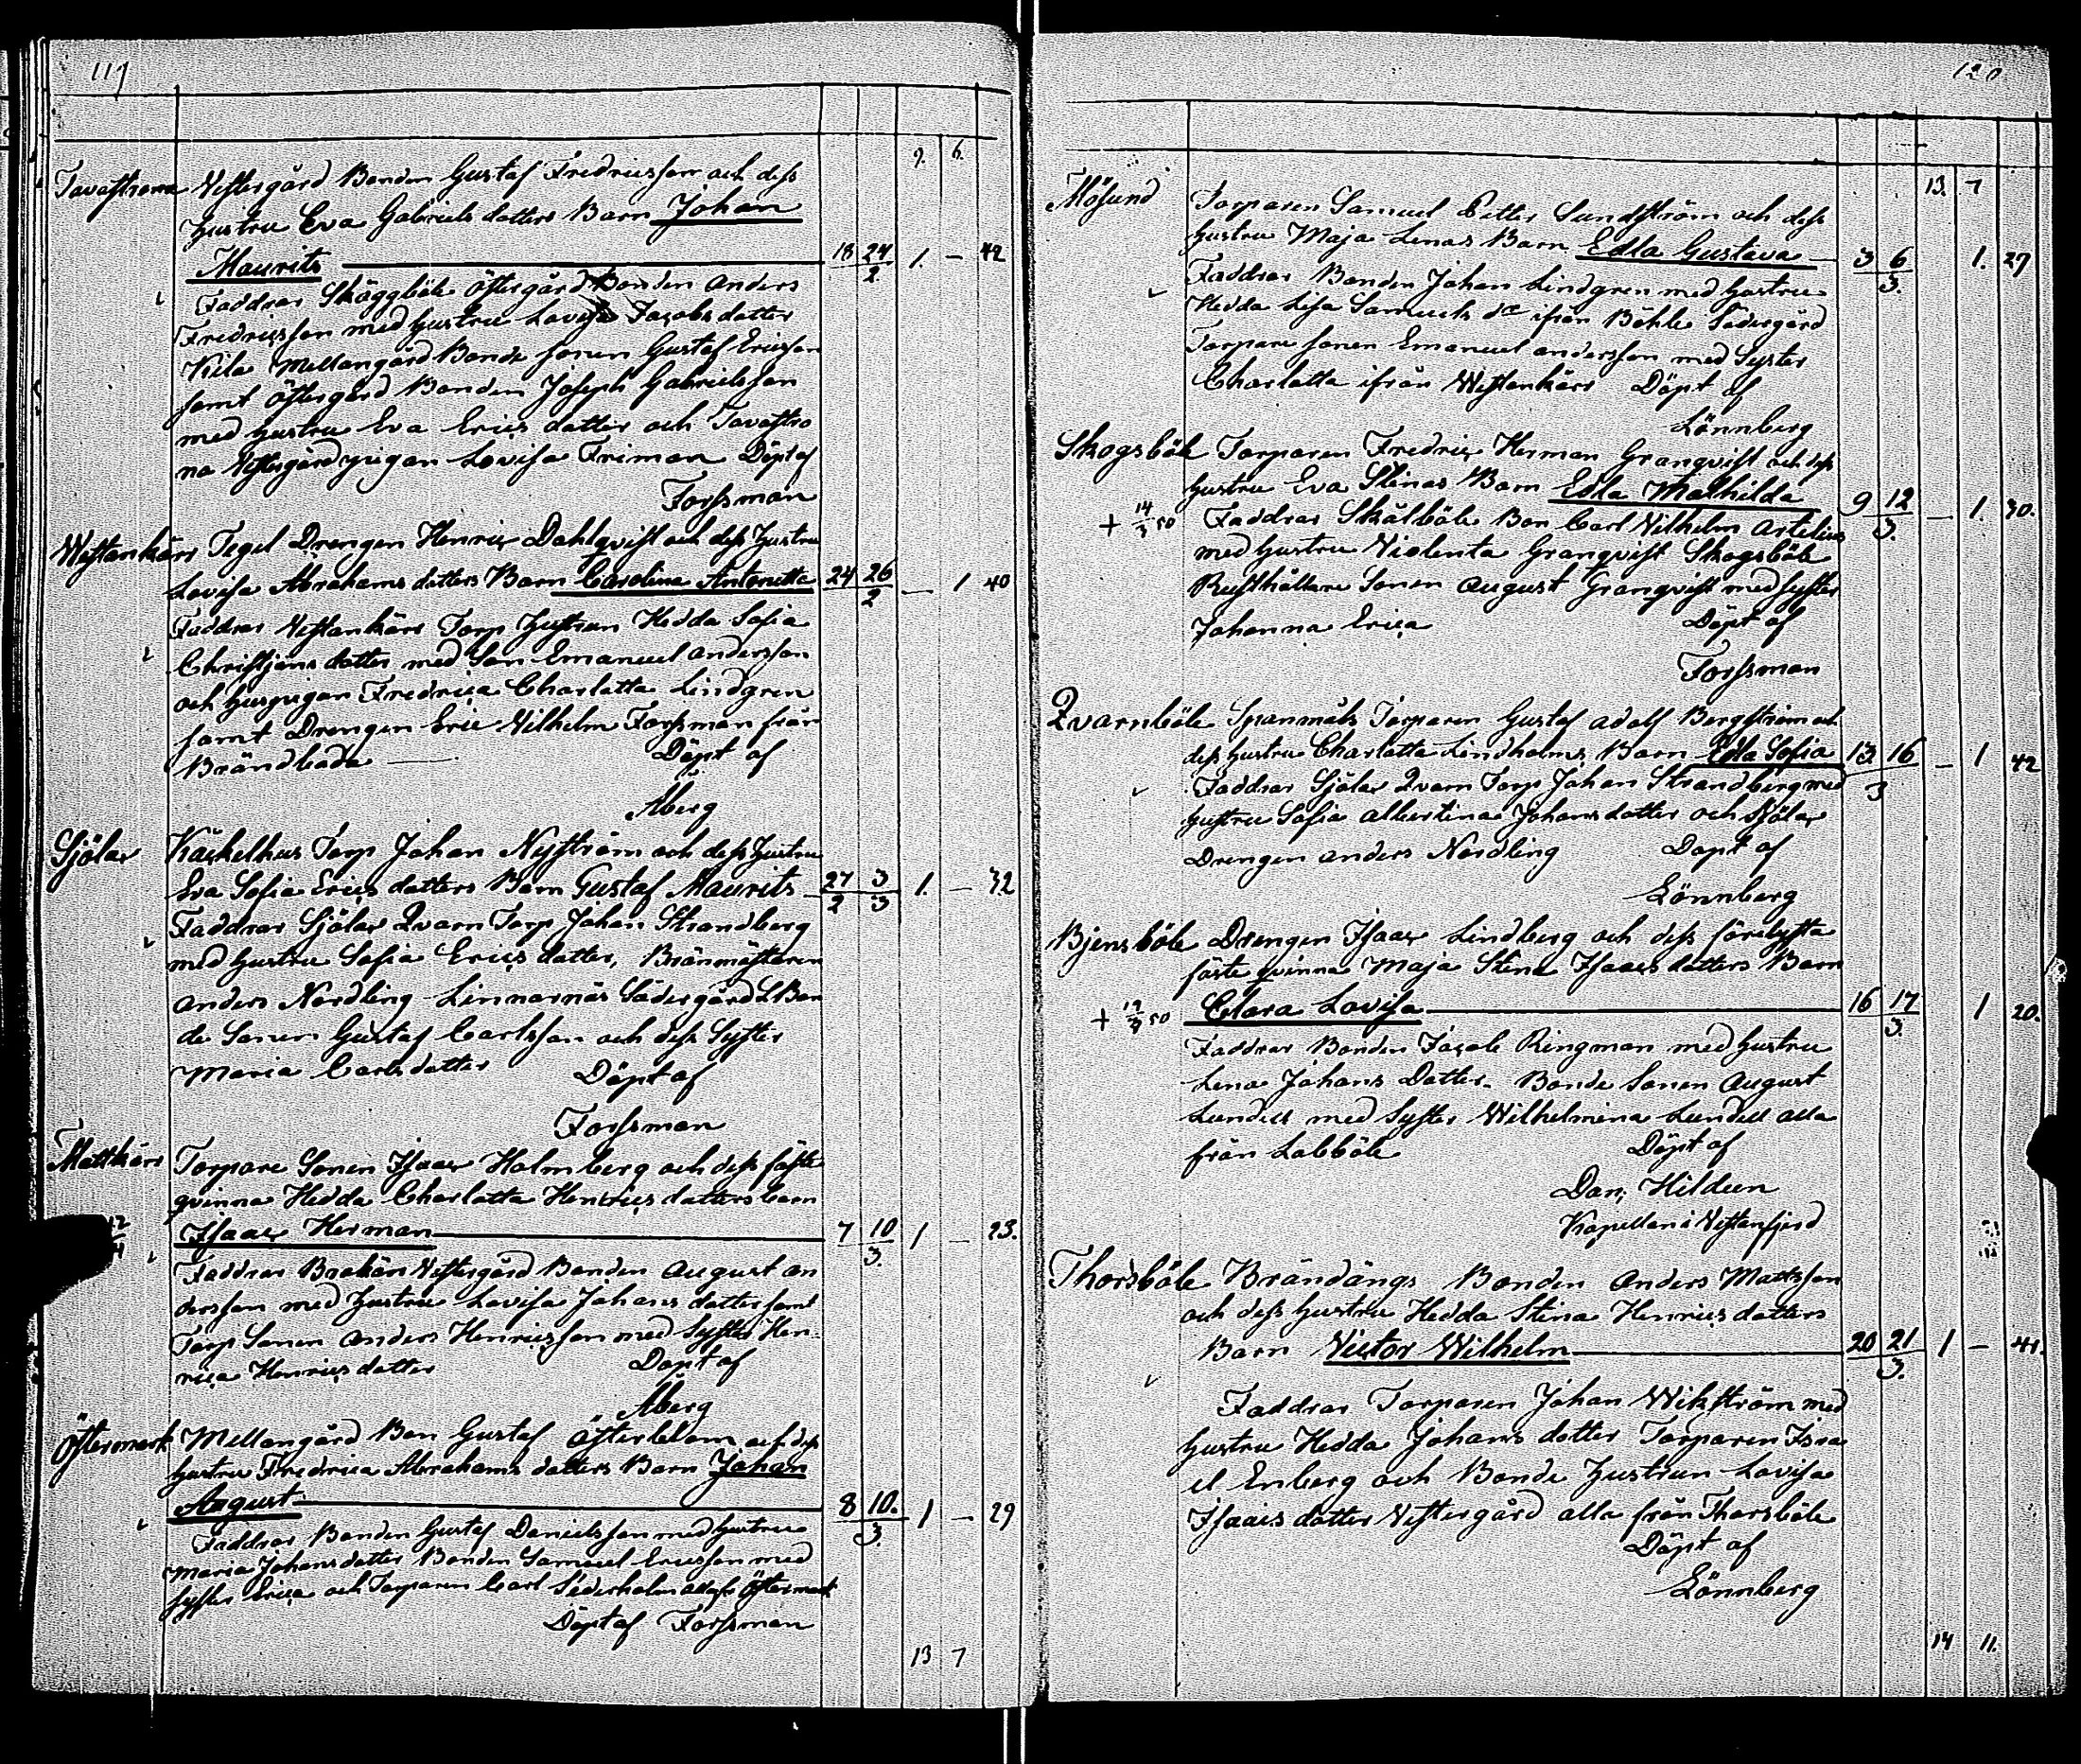 119
9. 6.
Tavastrona Westergård Bonden Gustaf Fredricsson och dess
hustru Eva Gabriels dotters Barn Johan
Maurits 18 24/2 1. — 42
Faddrar Skäggböle Östergård Bonden Anders
Fredricsson med hustru Lovisa Jacobs dotter
Kila Mellangård Bonde sonen Gustaf Ericsson
samt Östergård Bonden Joseph Gabrielsson
med hustru Eva Erics dotter och Tavastro
na Westergård pigan Lovisa Friman Döpt af
Forssman
Westankärr Tegel Drengen Henric Dahlqvist och dess hustru
Lovisa Abrahams dotters Barn Carolina Antonetta 24 26/2 — 1 40
Faddrar Westankärr Torp hustrun Hedda Sofia
Christjans dotter med Son Emanuel Andersson
och huspigan Fredrica Charlotta Lindgren
samt Drengen Eric Wilhelm Forssman från
Brändboda — Döpt af
Åberg
Sjölax Käckelhus Torp Johan Nyström och dess hustru
Eva Sofia Erics dotters Barn Gustaf Maurits 27/2 3/3 1. — 32
Faddrar Sjölax Qvarn Torp Johan Strandberg
med hustru Sofia Erics dotter, Bränmästaren
Anders Nordling Linnarnäs Södergård Bon
de Sonen Gustaf Carlsson och dess Syster
Maria Carlsdotter Döpt af
Forssman
Mattkärr Torpare Sonen Isaac Holmberg och dess fäste
qvinna Hedda Charlotta Henrics dotters barn
Isaac Herman 7 10/3. 1 — 23.
Faddrar Brokärr Westergård Bonden August An
dersson med hustru Lovisa Johans dotter samt
Torp Sonen Anders Henricsson med Syster Hen
rica Henrics dotter Döpt af
Åberg
Östermark Mellangård Bon Gustaf Österblom och dess
hustru Fredrica Abrahams dotters Barn Johan
August 8 10./3. 1 — 29
Faddrar Bonden Gustaf Danielsson med hustru
Maria Johansdotter Bonden Samuel Ericsson med
syster Erica och Torparen Carl Söderholm alla fr Östermark
Döpt af Forssman
13 7
120
13. 7
Mösund Torparen Samuel Petter Sundström och dess
hustru Maja Lenas Barn Edla Gustava 3 6/3. 1. 27
Faddrar Bonden Johan Lindgren med hustru
Hedda Lisa Samuels dr ifrån Böhle Södergård
Torpare sonen Emanuel Andersson med Syster
Charlotta ifrån Westankärr Döpt af
Lönnberg
Skogsböle Torparen Fredric Herman Granqvist och dess
hustru Eva Stinas Barn Edla Mathilda 9 12/3. — 1. 30.
+ 14/3 50 Faddrar Skålböle Bon Carl Wilhelm Artelius
med hustru Violenta Granqvist Skogsböle
Rusthållare Sonen August Granqvist med syster
Johanna Erica Döpt af
Forssman
Qvarnböle Spanmåls Torparen Gustaf Adolf Bergström och
dess hustru Charlotta Lindholms Barn Edla Sofia 13. 16/3 — 1 42
Faddrar Sjölax Qvarn Torp Johan Strandberg med
hustru Sofia Albertina Johans dotter och Sjölax
Drengen Anders Nordling Döpt af
Lönnberg
Bjensböle Drengen Isaac Lindberg och dess förelysta
fäste qvinna Maja Stina Isaacs dotters Barn
+ 50 Clara Lovisa 16 17/3. 1 20.
Faddrar Bonden Jacob Ringman med hustru
Lena Johans Dotter. Bonde Sonen August
Lundell med Syster Wilhelmina Lundell alla
från Labböle Döpt af
Dan. Hildeen
Kapellan i Westanfjerd
Thorsböle Brändängs Bonden Anders Mattsson
och dess hustru Hedda Stina Henrics dotters
Barn Victor Wilhelm 20 21/3. 1 — 41.
Faddrar Torparen Johan Wikström med
hustru Hedda Johans dotter Torparen Isra
el Enberg och Bonde hustrun Lovisa
Isaacs dotter Westergård alla från Thorsböle
Döpt af
Lönnberg
14 11.